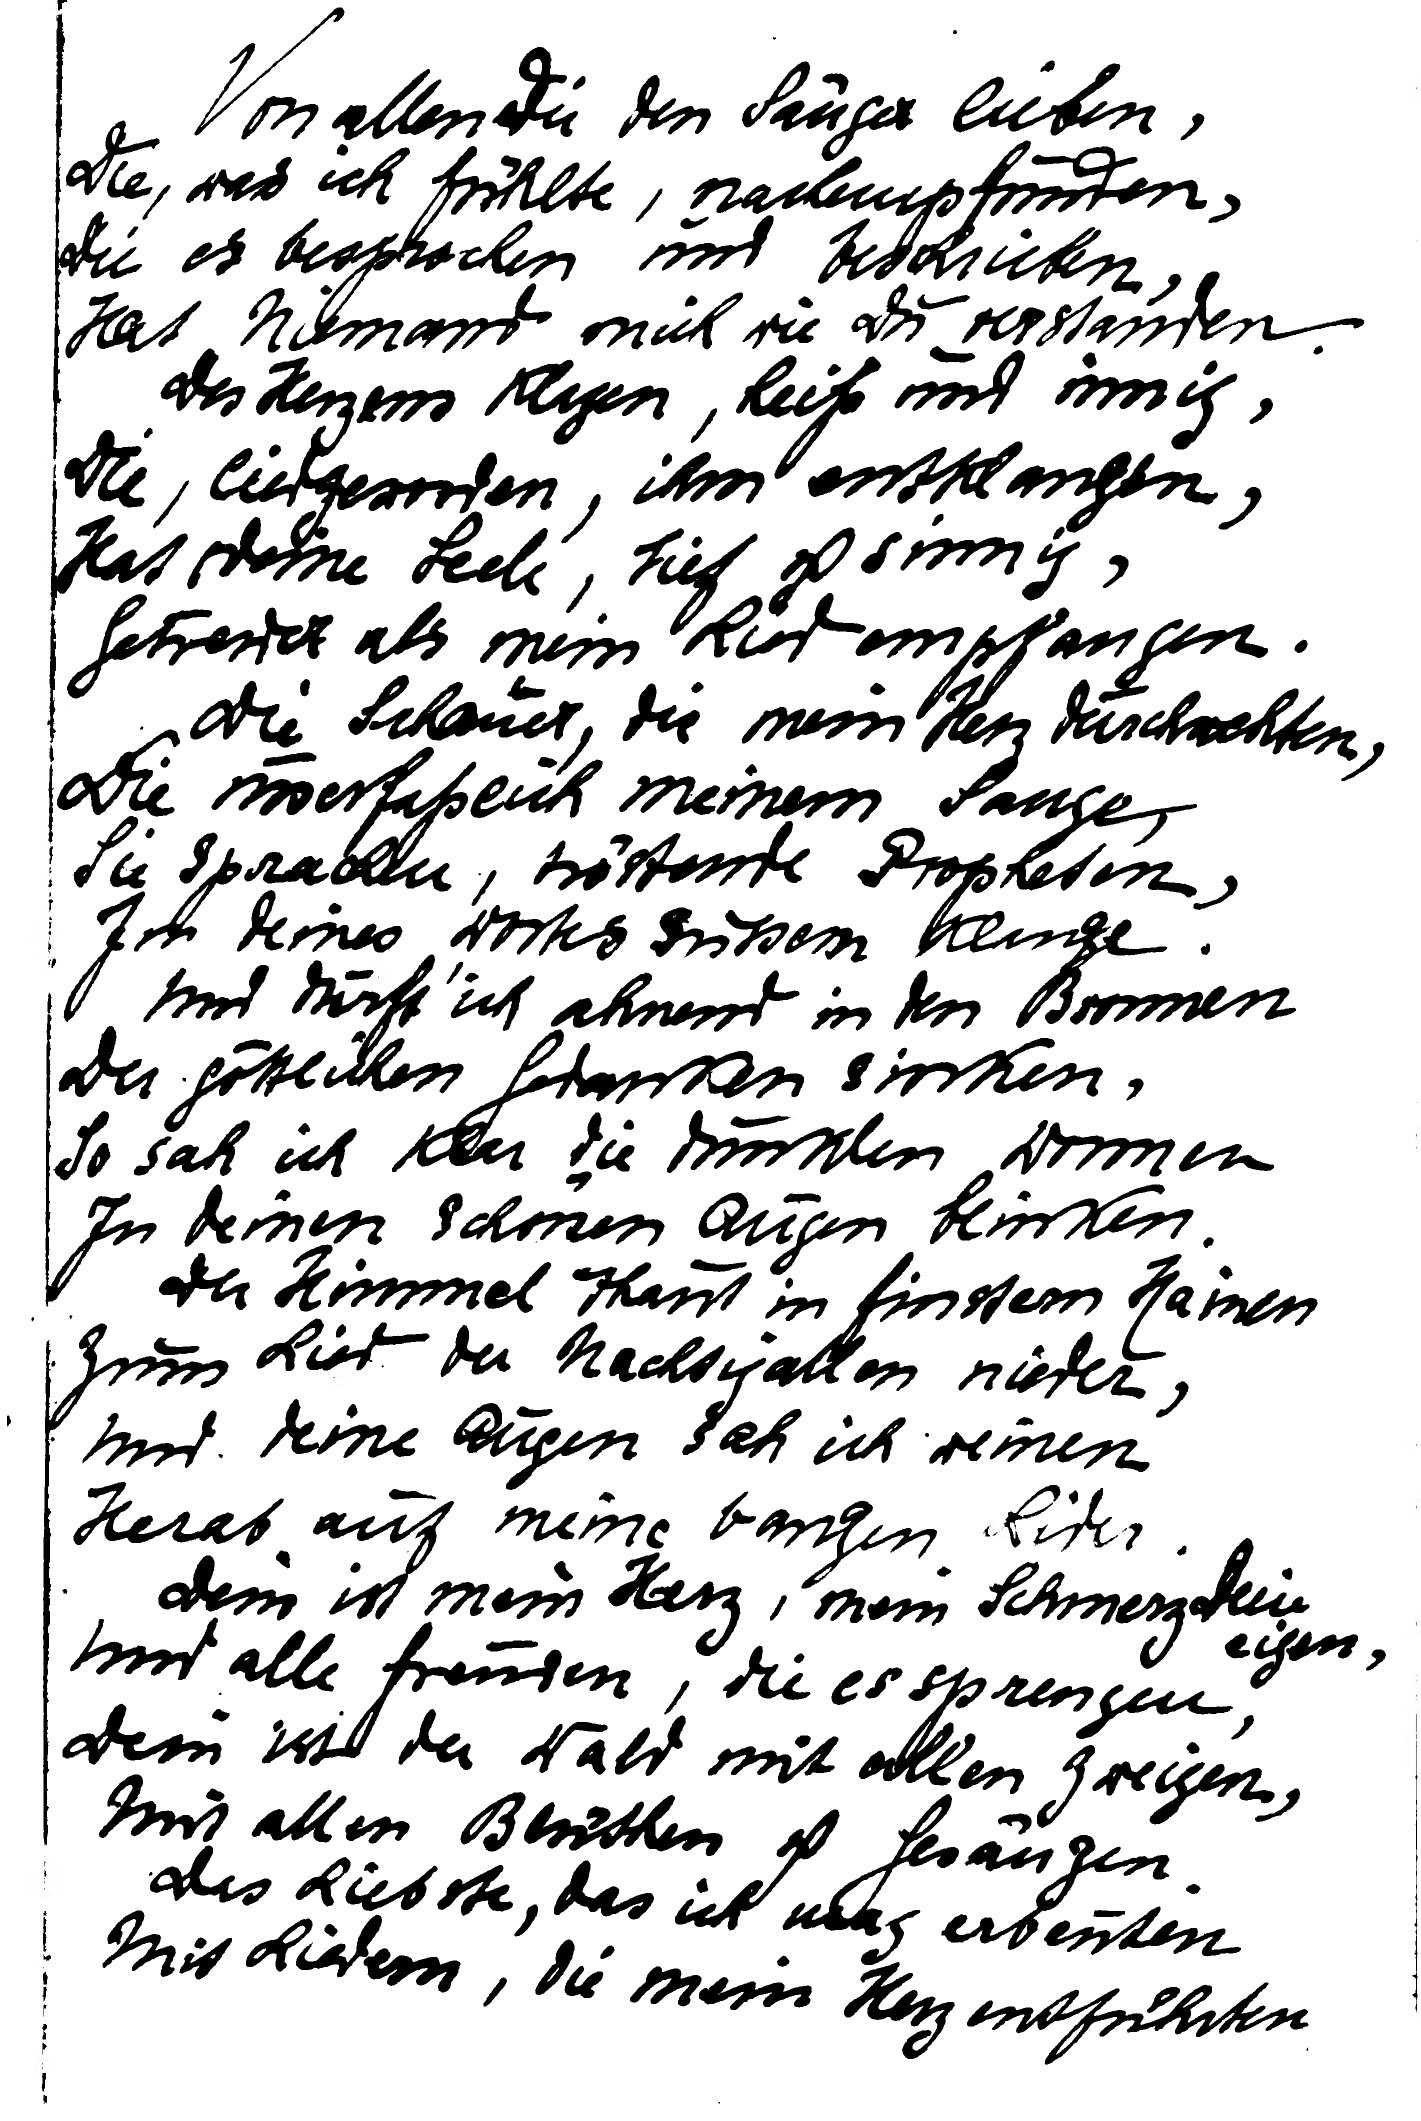 Von allen die den Sänger lieben,
Die, was ich fühlte, nachempfunden,
Die es besprochen und beschrieben,
Hat Niemand mich wie Du verstanden.
Des Herzens Klagen, heiß und innig,
Die, liedgeworden, ihm entklangen,
Hat deine Seele, tief & sinnig,
Getreuer als mein Lied empfangen.
Die Schauer, die mein Herz durchwehten,
Die unerfaßlich meinem Sange,
Sie sprachen, tröstende Propheten,
In deines Wortes süssem Klange.
Und durft' ich ahnend in den Bronnen
Der göttlichen Gedanken sinken,
So sah ich klar die dunklen Wonnen
In deinen schönen Augen blinken.
Der Himmel thaut in finstern Hainen
Zum Lied der Nachtigallen nieder,
Und deine Augen sah ich weinen
Herab auf meine bangen Lider.
Dein ist mein Herz, mein Schmerz dein
eigen,
Und alle Freuden, die es sprengen,
Dein ist der Wald mit allen Zweigen,
Mit allen Blüthen & Gesängen.
Das Liebste, das ich mag erbeuten
Mit Liedern, die mein Herz entführten